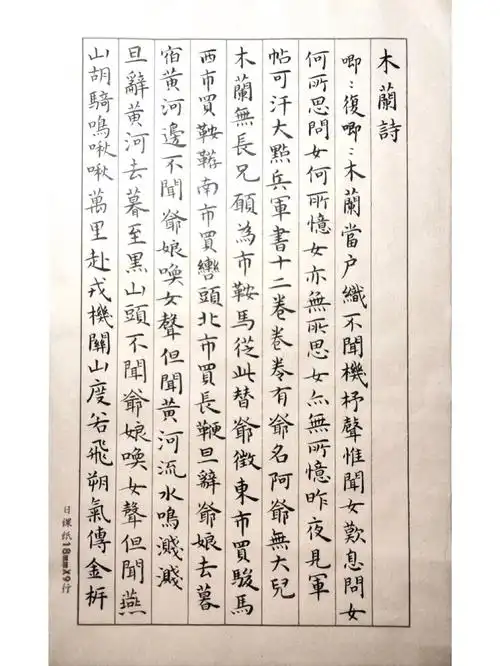 木蘭詩
唧〻復唧〻木蘭當户織不聞機杼聲惟聞女歎息問女
何所思問女何所憶女亦無所思女亦無所憶昨夜見軍
帖可汗大點兵軍書十二卷卷卷有爺名阿爺無大兒
木蘭無長兄願為市鞍馬從此替爺徵東市買駿馬
西市買鞍韉南市買轡頭北市買長鞭旦辭爺娘去暮
宿黃河邊不聞爺娘喚女聲但聞黃河流水鳴濺濺
旦辭黃河去暮至黑山頭不聞爺娘喚女聲但聞燕
山胡騎鳴啾啾萬里赴戎機關山度若飛朔氣傳金柝
日課紙18mmX9行